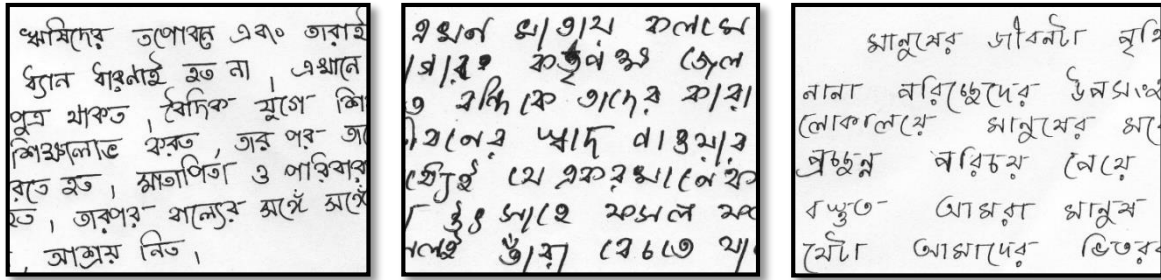 ঋষিদের তপোবন এবং তারাই
ধ্যান ধারনাই হত না, এখানে
পুত্র থাকত, বৈদিক যুগে শি
শিক্ষালাভ করত, তার পর
রতে হত, মাতাপিতা ও পরিবার
হত, তারপর বাল্যের সঙ্গে সঙ্গে
আশ্রয় নিত,
এখন খাতায় কলমে
কর্তৃপক্ষ জেল
বন্দি কে তাদের কারা
স্বাদ পাওয়ার
যে একরখানেক
সাহে ফসল
তারা বেচতে
মানুষের জীবনটা
নানা পরিচ্ছেদের
লোকালয়ে মানুষের
প্রচ্ছন্ন পরিচয় পেয়ে
বস্তুত আমরা মানুষ
যেটা আমাদের ভিতর